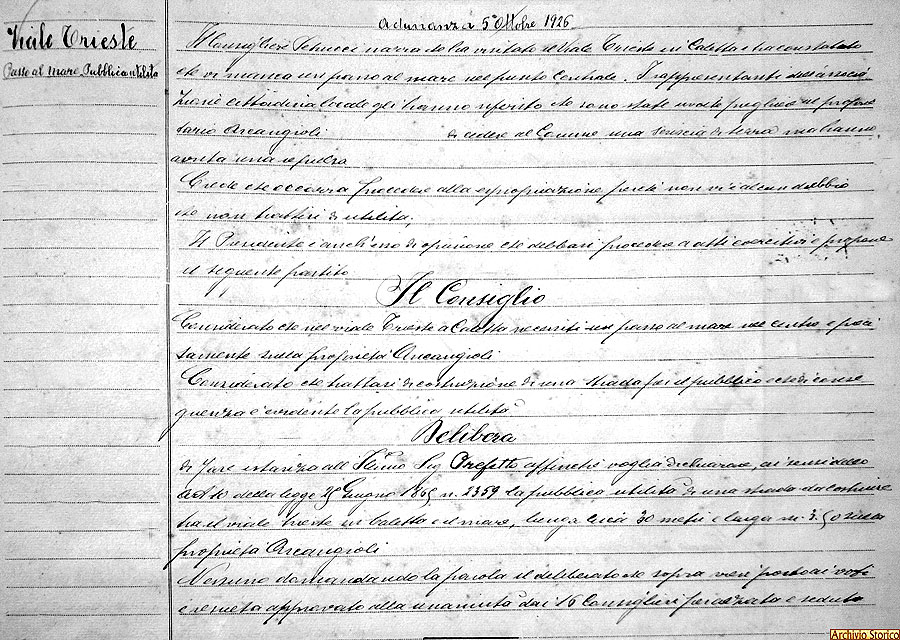 Adunanza 5 Ottobre 1926
Viale Trieste
Passo al mare Pubblica utilità
Il Consigliere narra da lui visitato il Viale Trieste in Caletta e ha constatato
che vi manca un passo al mare nel punto centrale. I rappresentanti dell'associa
zione cittadina locale gli hanno riferito che sono state rivolte preghiere al proprie
tario Arcangioli di cedere al Comune una striscia di terra ma hanno
avuta una repulsa
Crede che occorra procedere alla espropriazione perché non vi è alcun dubbio
che non trattisi di utilità.
Il Presidente è anch'esso di opinione che debbasi procedere a atti coercitivi e propone
il seguente partito
Il Consiglio
Considerato che nel viale Trieste a Caletta necessiti un passo al mare nel centro e preci
samente sulla proprietà Arcangioli
Considerato che trattasi di costruzione di una strada per il pubblico e che di conse
guenza è evidente la pubblica utilità
Delibera
di fare istanza all' Ill.mo Sig. Prefetto affinché voglia dichiarare, ai sensi dello
art. 10 della legge 25 Giugno 1865 n. 2359 la pubblica utilità di una strada da costruire
tra il viale Trieste in Caletta e il mare, lunga circa 30 metri e larga m. 3.50 sulla
proprietà Arcangioli
Nessuno domandando la parola il deliberato che sopra vien posto ai voti
e resulta approvato alla unanimità dai 16 Consiglieri per alzata e seduta
Archivio Storico